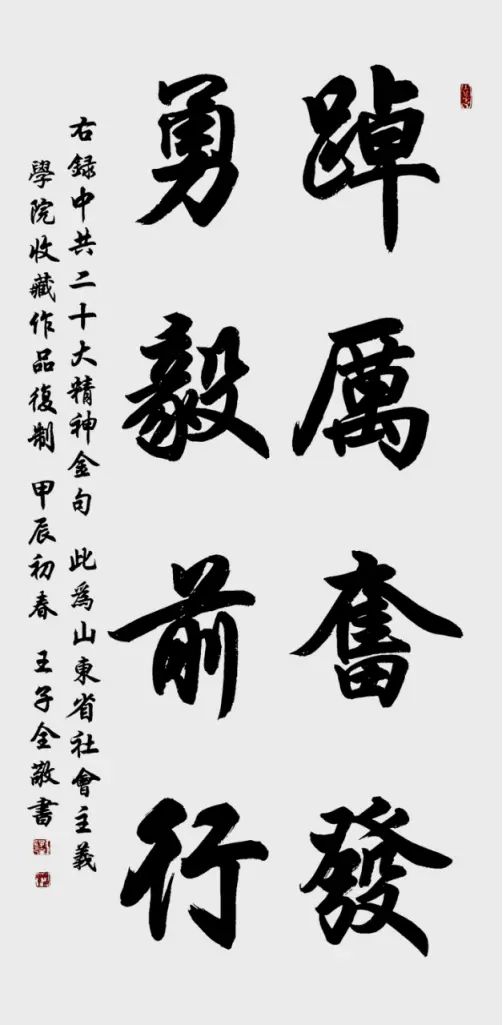 踔厲奮發
勇毅前行
右録中共二十大精神金句 此爲山東省社會主義
學院收藏作品復制 甲辰初春 王子全敬書